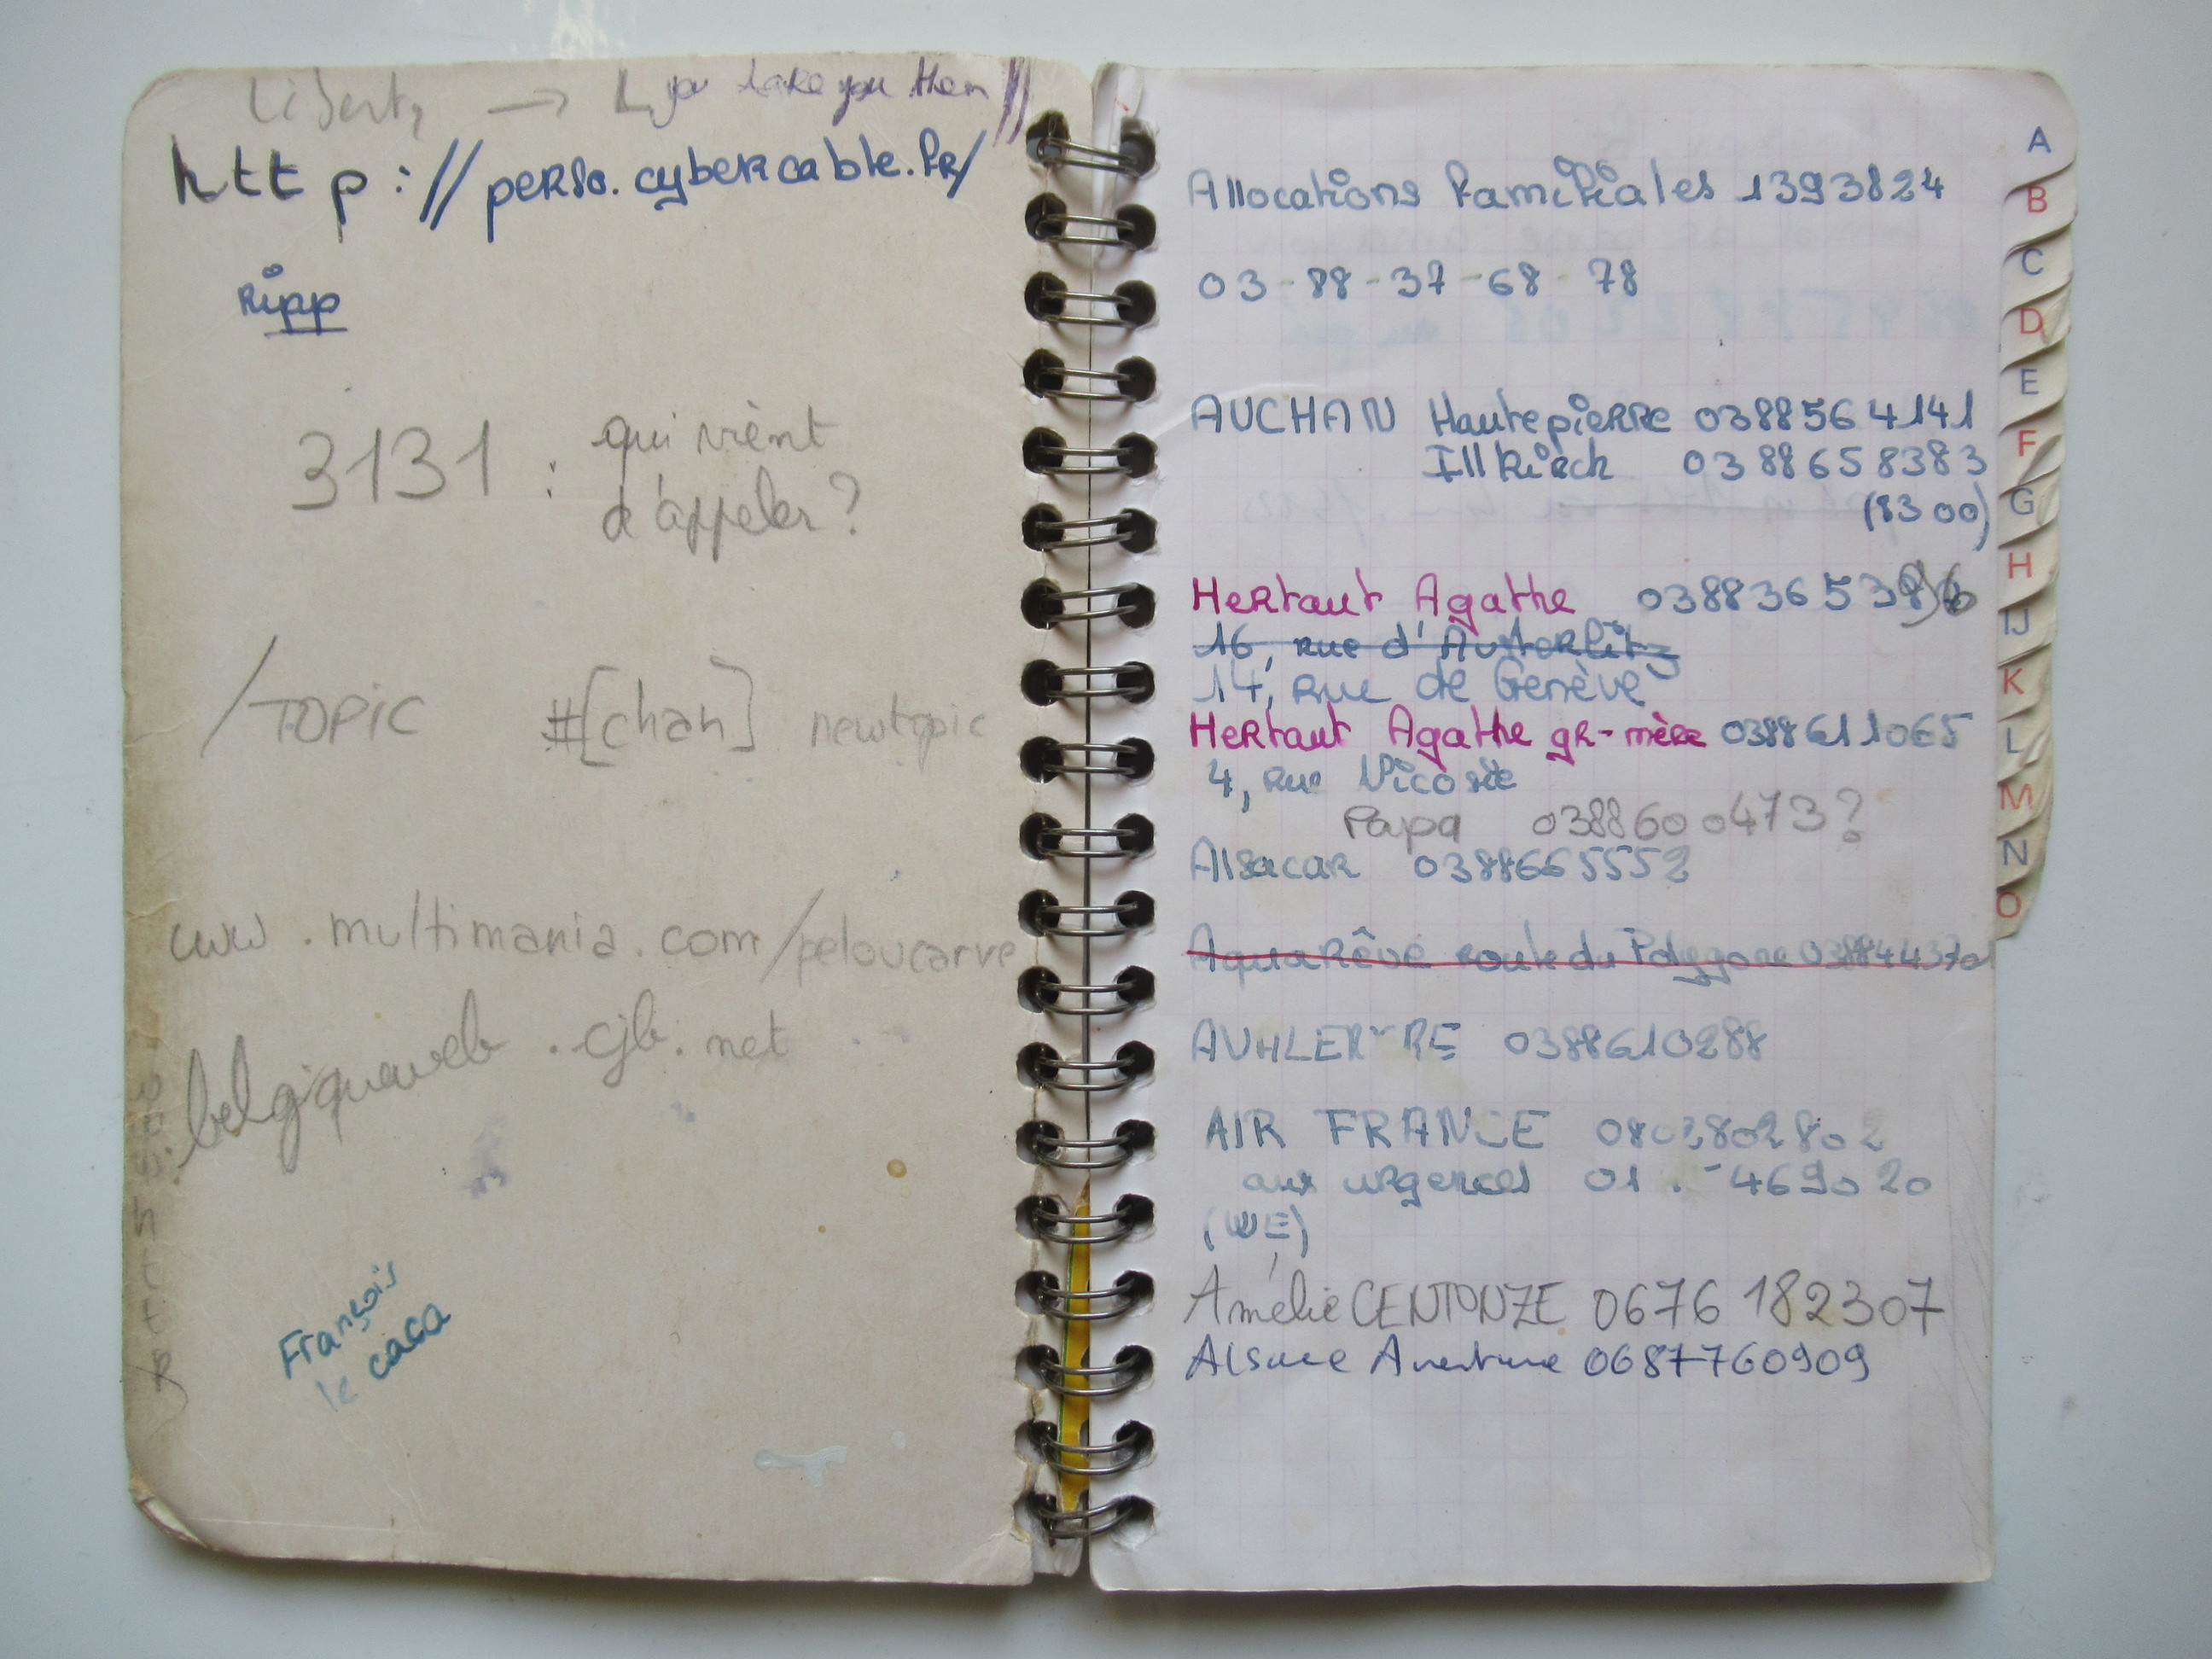 Liberty → you take you then
http://perso.cybercable.fr/
Ripp
3131 : qui vient
d'appeler ?
/TOPIC #[chan] newtopic
www.multimania.com/peloucarve
belgiqueweb.cjb.net
François
le caca
Allocations Familiales 1393824
03-88-37-68-78
AUCHAN Hautepierre 0388564141
Illkirch 0388658383
(8300)
Hertaut Agathe 03883653
16, rue d'Austerlitz
14, rue de Genève
Hertaut Agathe gr-mère 0388611065
4, rue Nicosie
Papa 0388600473?
Alsacar 0388665552
AquaRêve route du Polygone
0388610288
AIR FRANCE 0803802802
aux urgences 01 4469020
(WE)
Amélie CENTONZE 0676 182307
Alsace Aventure 0687760909
A
B
C
D
E
F
G
H
IJ
K
L
M
N
O